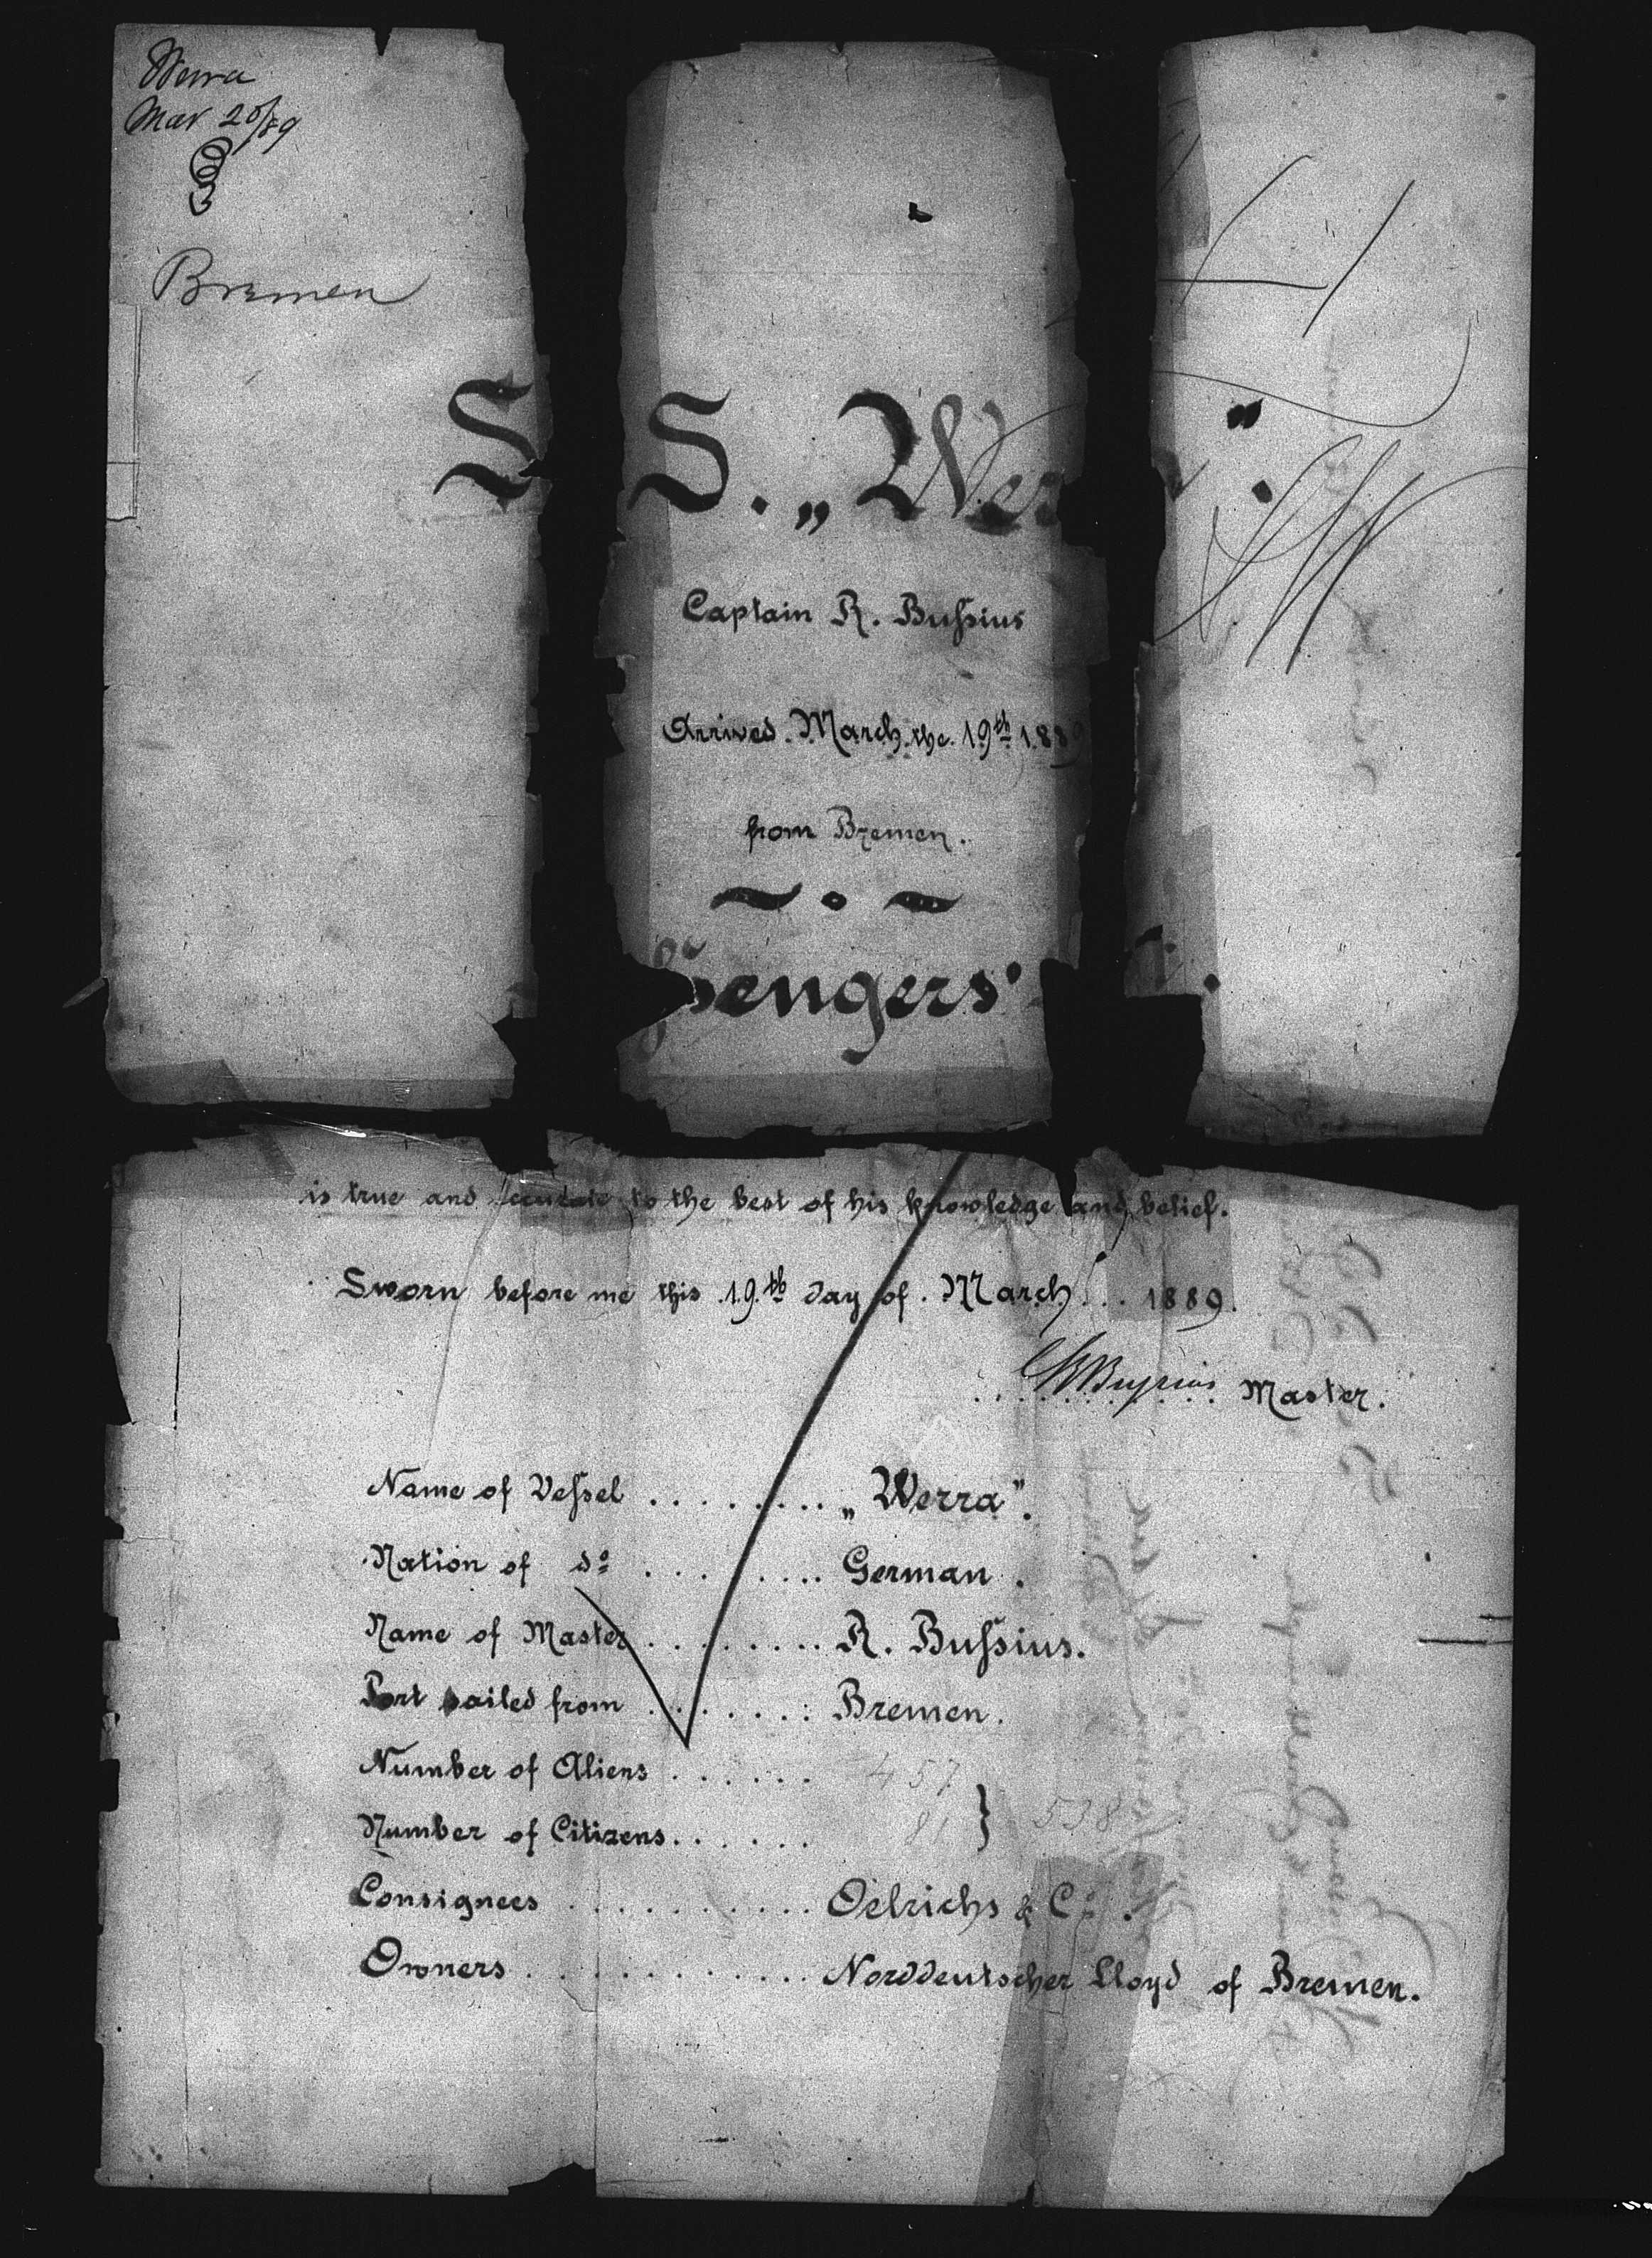 Werra
Mar 20/89
Bremen
S. S. „Wer
".
Captain R. Bußsius
Arrived. March. the. 19th 1889
from Bremen.
ssengers'
is true and accurate to the best of his knowledge and belief.
Sworn before me this .19.th day of . March . . . 1889.
RBussius Master.
Name of Vessel . . . . . . . . . „Werra".
Nation of do . . . . . . . . German .
Name of Master . . . . . . . . . R. Bussius.
Port sailed from . . . . . . . : Bremen.
Number of Aliens . . . . . . 457
Number of Citizens . . . . . . 81 } 538
Consignees . . . . . . . . . . . Oelrichs & Co .
Owners . . . . . . . . . . . . Norddeutscher Lloyd of Bremen.